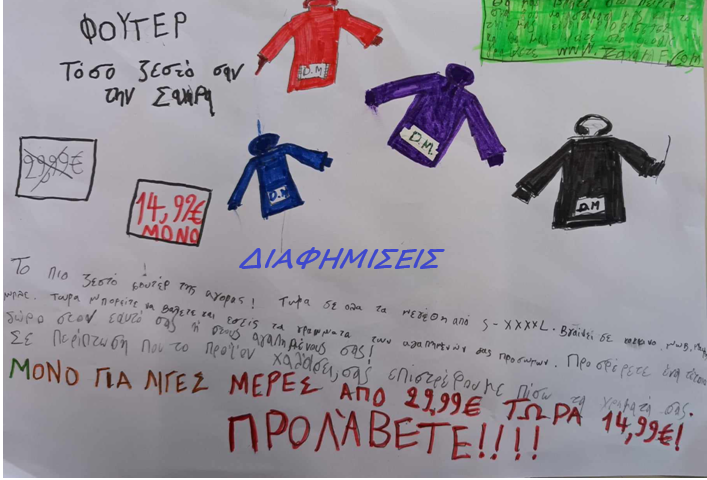 ΦΟΥΤΕΡ
Τόσο ζεστό σαν
την Σαχάρα
29,99€
14,99€
ΜΟΝΟ
D.M
D.M.
D.M
D.M
www. .com
ΔΙΑΦΗΜΙΣΕΙΣ
Το πιο ζεστό φούτερ της αγοράς! Τώρα σε όλα τα μεγέθη από S-XXXXL. Βγαίνει σε κόκκινο, μωβ,
μπλε. Τώρα μπορείτε να βάλετε και εσείς τα γράμματα των αγαπημένων σας προσώπων. Προσφέρετε ένα τέτοιο
δώρο στον εαυτό σας ή στους αγαπημένους σας!
Σε περίπτωση που το προϊόν χαλάσει, σας επιστρέφουμε πίσω τα χρήματά σας.
ΜΟΝΟ ΓΙΑ ΛΙΓΕΣ ΜΕΡΕΣ ΑΠΟ 29,99€ ΤΩΡΑ 14,99€!
ΠΡΟΛΆΒΕΤΕ!!!!